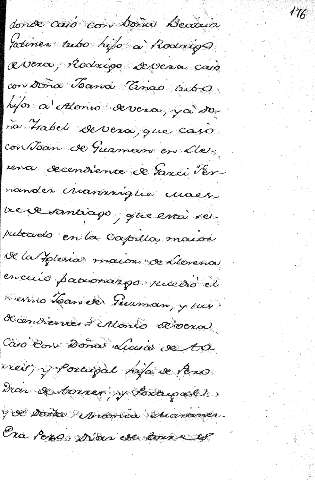 176
donde casó con Doña Beatriz
Godinez tubo hijo á Rodrigo
de vera, Rodrigo de vera casó
con Doña Joana Tinao tubo
hijos á Alonso de vera, y á do-
ña Ysabel de vera, que casó
con Joan de Guzman en Lle-
rena decendiente de Garci Fer-
nandez Manrrique Maes-
tre de santiago, que está se-
pultado en la Capilla maior
de la Yglesia maior de Llerena
en cuio patronazgo suedió el
mesmo Joan de Guzman, y sus
decendientes Alonso de vera
Casó con Doña Lucia de
y Portugal hija de Pero
Diaz de torres, y Portugal
y de Doña
Era Pero Diaz de torres